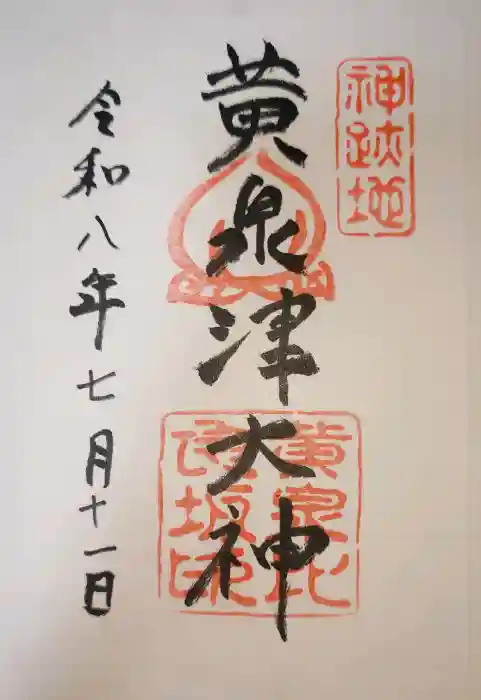 神跡地
黄泉津大神
黄泉比
良坂印
令和八年七月十一日